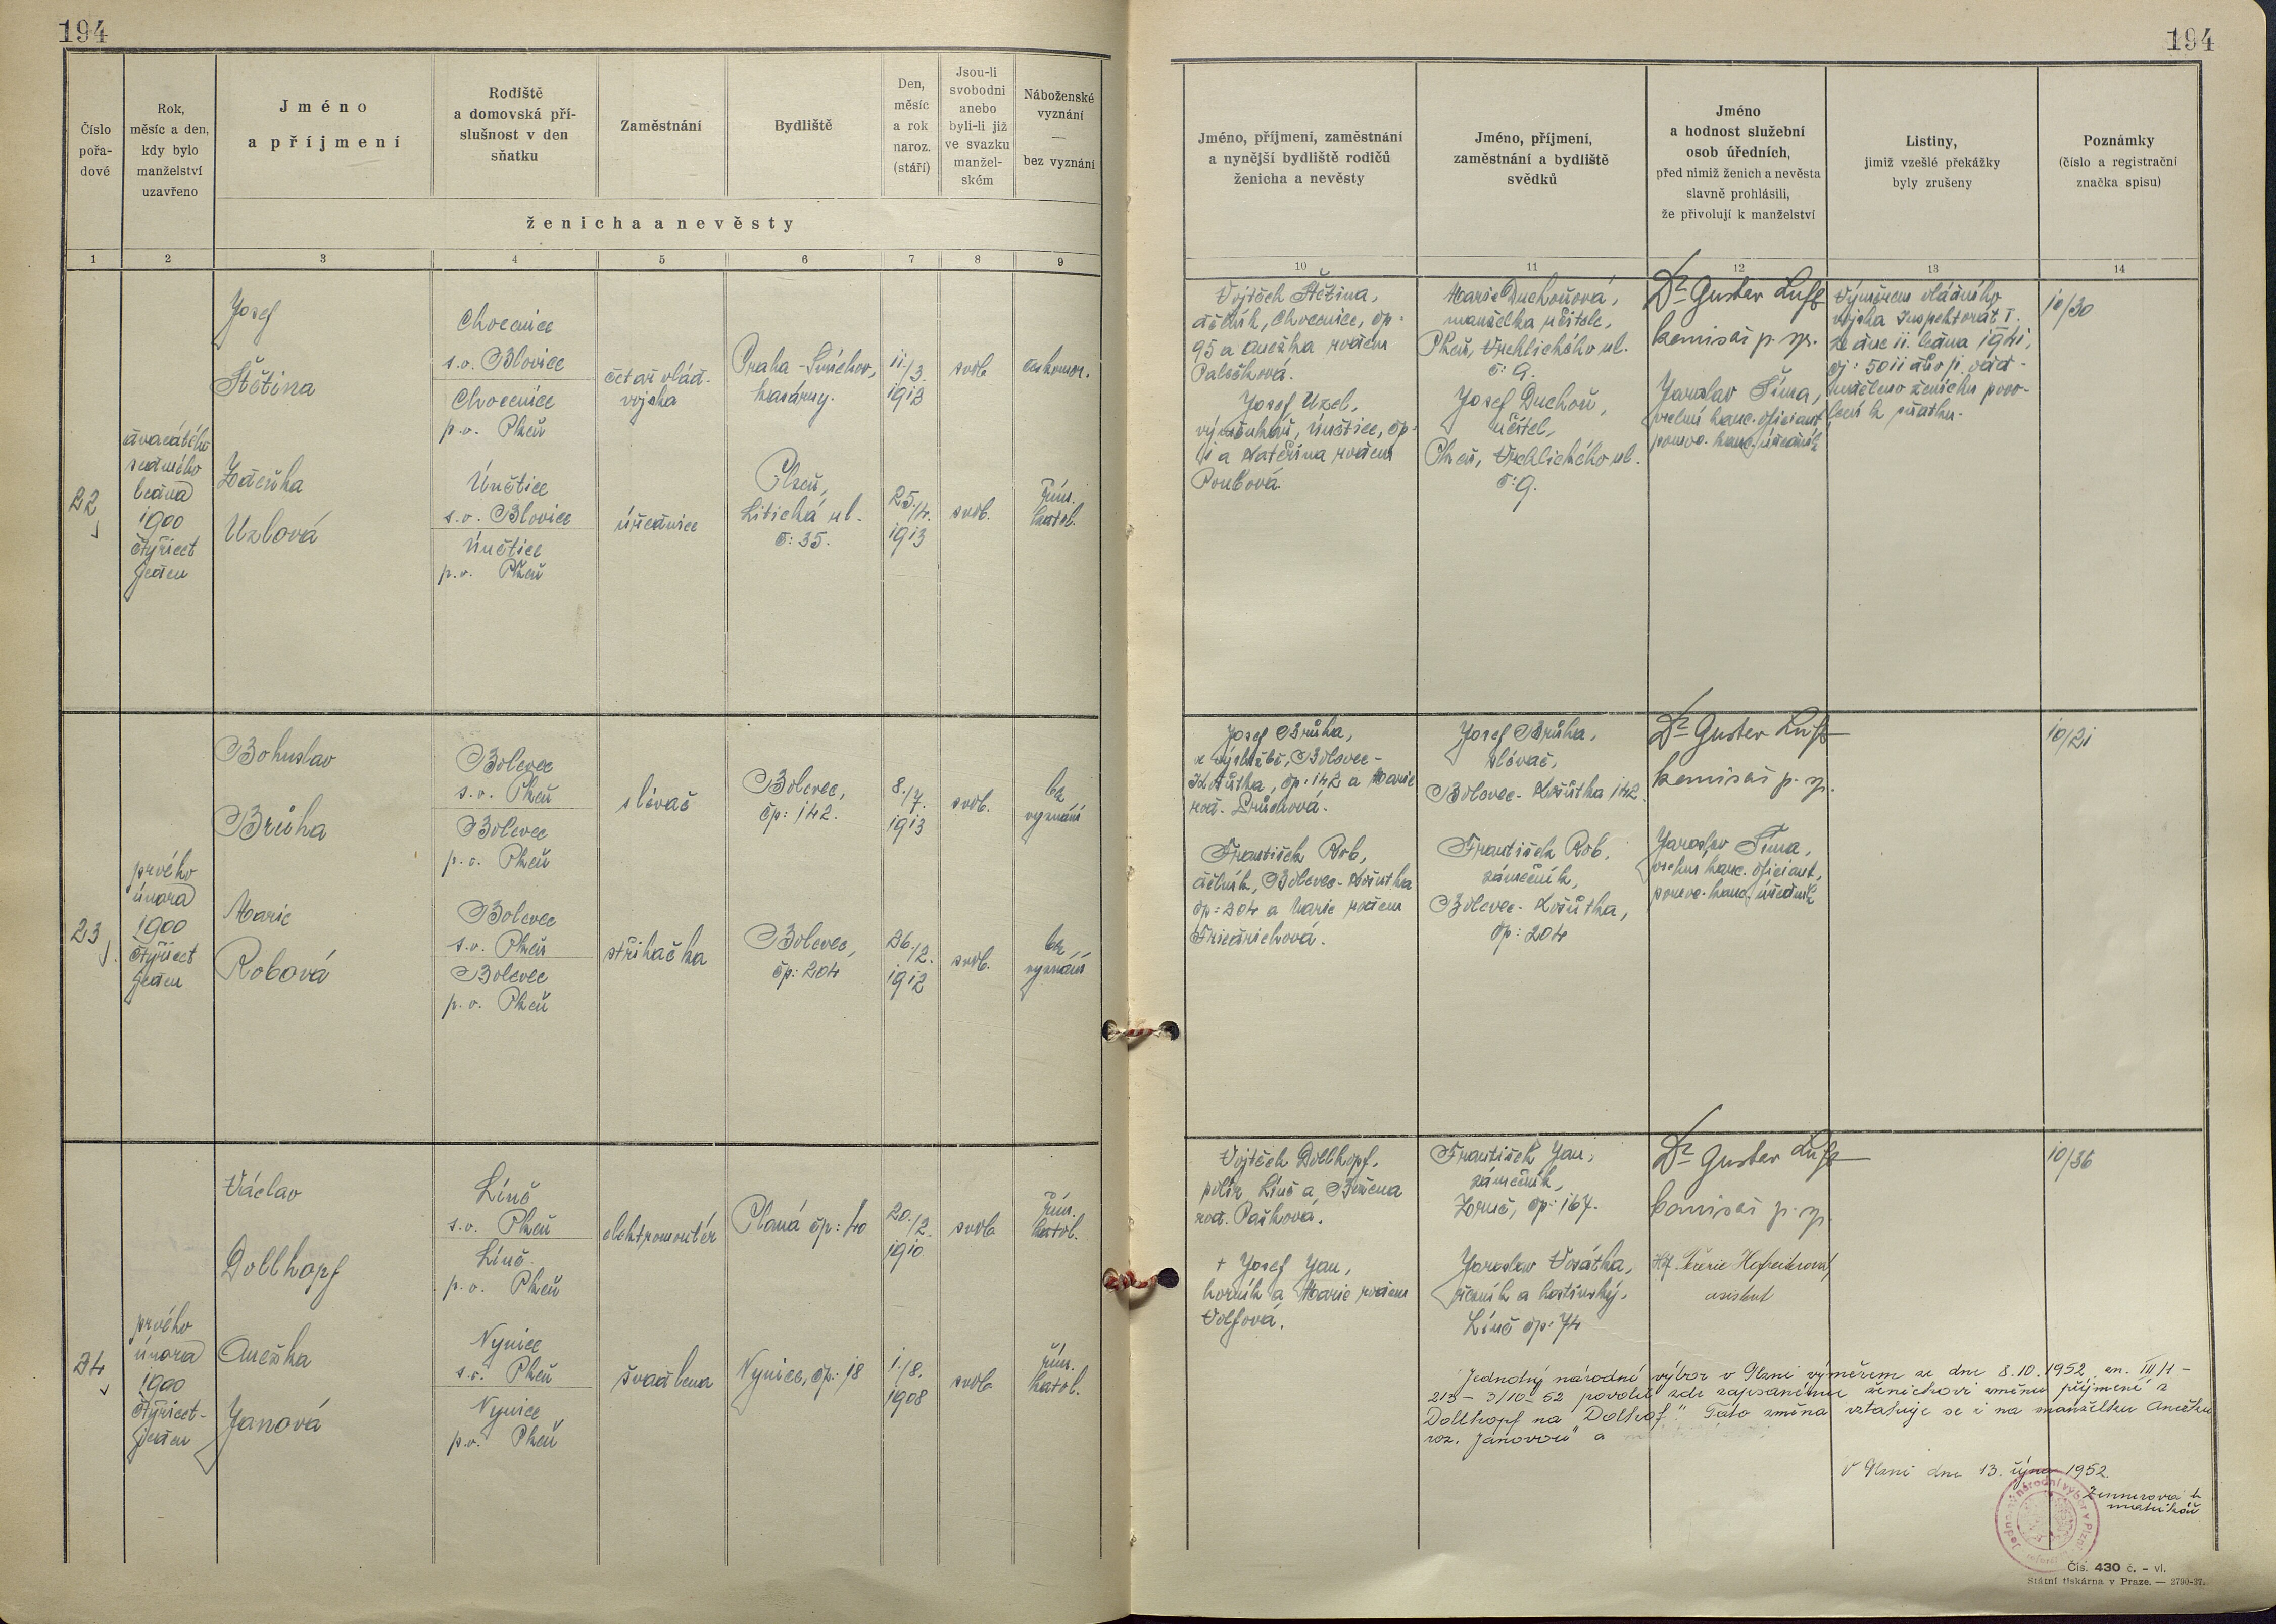 194
194
Číslo
pořa-
dové
Rok,
měsíc a den,
kdy bylo
manželství
uzavřeno
Jméno
a příjmení
Rodiště
a domovská pří-
slušnost v den
sňatku
Zaměstnání
Bydliště
Den,
měsíc
a rok
naroz.
(stáří)
Jsou-li
svobodni
anebo
byli-li již
ve svazku
manžel-
ském
Náboženské
vyznání
—
bez vyznání
ženicha a nevěsty
1 2 3 4 5 6 7 8 9
Jméno, příjmení, zaměstnání
a nynější bydliště rodičů
ženicha a nevěsty
Jméno, příjmení,
zaměstnání a bydliště
svědků
Jméno
a hodnost služební
osob úředních,
před nimiž ženich a nevěsta
slavně prohlásili,
že přivolují k manželství
Listiny,
jimiž vzešlé překážky
byly zrušeny
Poznámky
(číslo a registrační
značka spisu)
10 11 12 13 14
22
dvacátého
sedmého
ledna
1900
čtyřicet
jeden
Josef
Štětina
Chocenice
s.o. Blovice
Chocenice
p.o. Plzeň
četař vlád.
vojska
Praha-Smíchov,
kasárny.
11./3.
1912
svob.
českomor.
Zdeňka
Uzlová
Únětice
s.o. Blovice
Únětice
p.o. Plzeň
úřednice
Plzeň,
Litická ul.
č: 35.
25./4.
1913
svob.
řím.
katol.
Vojtěch Štětina,
dělník, Chocenice, čp.
95 a Anežka rodem
Palečková.
Josef Uzel,
výměnkář, Únětice, čp.
1 a Kateřina rodem
Poubová
Marie Duchoňová,
manželka učitele,
Plzeň, Vrchlického ul.
č: 9.
Josef Duchoň,
učitel,
Plzeň, Vrchlického ul.
č: 9.
Dr. Gustav Luft
komisař p. sp.
Jaroslav Šíma,
vrchní kanc. oficiant
pomoc. kanc. úředník
Výnosem vládního
vojska Inspektorát I.
ze dne 11. ledna 1941,
čj: 5011
uděleno ženichu povo-
lení k sňatku.
10/30
23
prvého
února
1900
čtyřicet
jeden
Bohuslav
Brůha
Bolevec
s.o. Plzeň
Bolevec
p.o. Plzeň
slévač
Bolevec,
čp: 142.
8./7.
1913
svob.
bez
vyznání
Marie
Robová
Bolevec
s.o. Plzeň
Bolevec
p.o. Plzeň
stříhačka
Bolevec,
čp: 204
26./2.
1912
svob.
bez
vyznání
Josef Brůha,
ve výslužbě, Bolevec-
Košutka, čp: 142 a Marie
rod. Průchová.
František Rob,
dělník, Bolevec-Košutka
čp: 204 a Marie rodem
Friedrichová.
Josef Brůha,
slévač,
Bolevec-Košutka 142.
František Rob,
zámečník,
Bolevec-Košutka,
čp: 204
Dr. Gustav Luft
komisař p. sp.
Jaroslav Šíma,
vrchní kanc. oficiant,
pomoc. kanc. úředník
10/21
24
prvého
února
1900
čtyřicet-
jeden
Václav
Dollhopf
Líně
s.o. Plzeň
Líně
p.o. Plzeň
elektromontér
Planá čp: 40
20./2.
1910
svob.
řím.
katol.
Anežka
Janová
Nýnice
s.o. Plzeň
Nýnice
p.o. Plzeň
švadlena
Nýnice, čp: 18
1./8.
1908
svob.
řím.
katol.
Vojtěch Dollhopf,
polír, Líně a Božena
rod. Pašková.
+ Josef Jan,
horník a Marie rodem
Volfová.
František Jan,
zámečník,
Zbrůč, čp: 167.
Jaroslav Vosátka,
řezník a hostinský,
Líně čp: 74
Dr. Gustav Luft
komisař p. sp.
asistent
10/36
Jednotný národní výbor v Plzni výměrem ze dne 8.10.1952, zn. III/1-
213-3/10-52 povolil zde zapsanému ženichovi změnu příjmení z
Dollhopf na "Dolhof". Tato změna vztahuje se i na manželku Anežku
roz. "Janovou" a
V Plzni dne 13. října 1952.
matrikář
Jednotný národní výbor v Plzni
Čís. 430 č. - vl.
Státní tiskárna v Praze. — 2790-37.